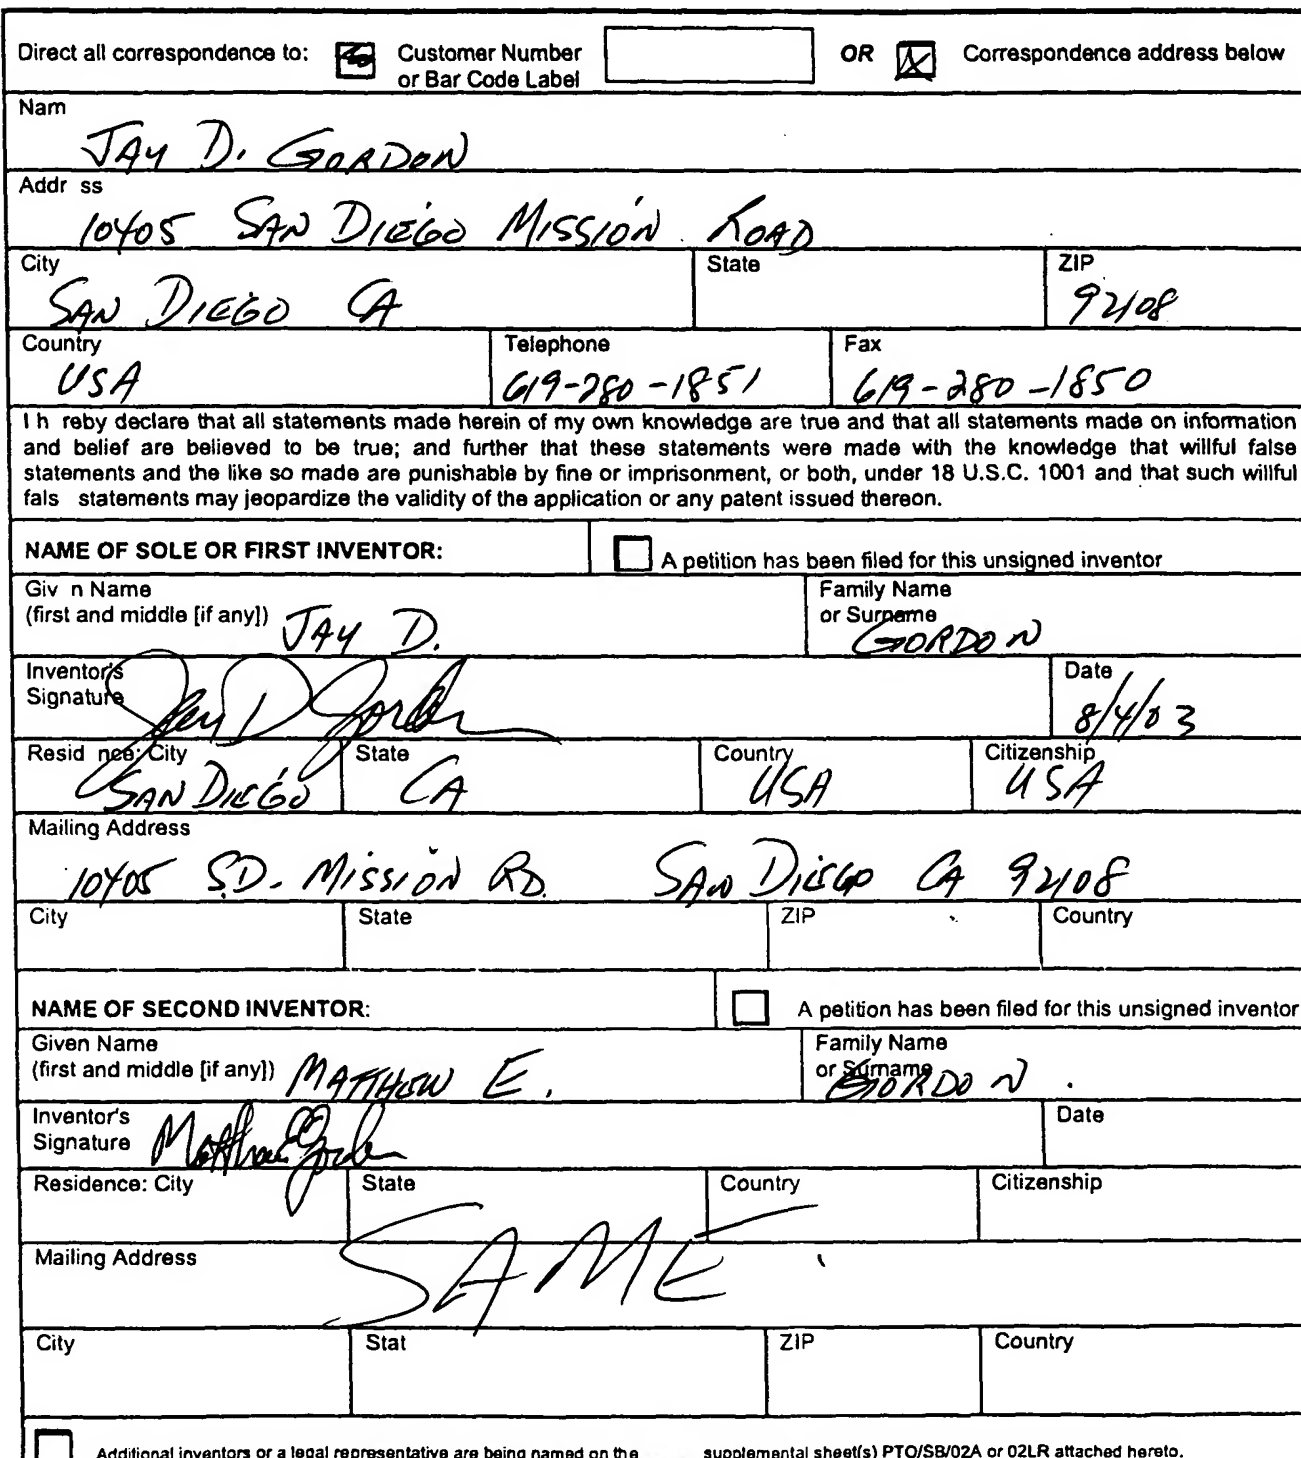 Direct all correspondence to: Customer Number or Bar Code Label OR Correspondence address below
Nam
JAY D. GORDON
Addr ss
10405 SAN DIEGO MISSION ROAD
City State ZIP
SAN DIEGO CA 92108
Country Telephone Fax
USA 619-280-1851 619-280-1850
I h reby declare that all statements made herein of my own knowledge are true and that all statements made on information
and belief are believed to be true; and further that these statements were made with the knowledge that willful false
statements and the like so made are punishable by fine or imprisonment, or both, under 18 U.S.C. 1001 and that such willful
fals statements may jeopardize the validity of the application or any patent issued thereon.
NAME OF SOLE OR FIRST INVENTOR: A petition has been filed for this unsigned inventor
Giv n Name Family Name
(first and middle [if any]) JAY D. or Surname GORDON
Inventor's Date
Signature Jay D Gordon 8/4/03
Resid nce: City State Country Citizenship
SAN DIEGO CA USA USA
Mailing Address
10405 S.D. MISSION RD. SAN DIEGO CA 92108
City State ZIP Country
NAME OF SECOND INVENTOR: A petition has been filed for this unsigned inventor
Given Name Family Name
(first and middle [if any]) MATTHEW E. or Surname GORDON
Inventor's Date
Signature Matthew E Gordon
Residence: City State Country Citizenship
SAME
Mailing Address
City Stat ZIP Country
Additional inventors or a legal representative are being named on the supplemental sheet(s) PTO/SB/02A or 02LR attached hereto.